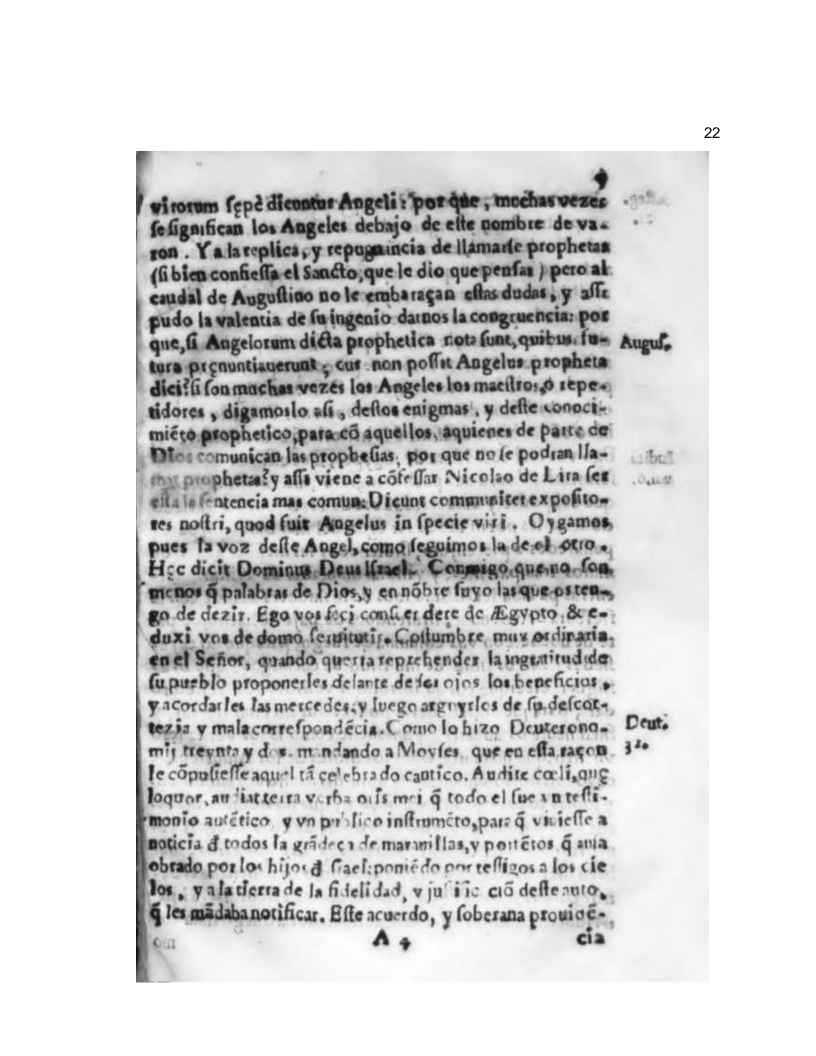 22
4
virorum ſępè dicuntur Angeli: por que, muchas vezes
ſe ſignifican los Angeles debajo de eſte nombre de va-
ron. Y a la replica, y repugnancia de llamarſe prophetas
(ſi bien confieſſa el Sancto, que le dio que penſar) pero al
caudal de Auguſtino no le embaraçan eſtas dudas, y aſſi
pudo la valentia de ſu ingenio darnos la congruencia: por
que, ſi Angelorum dicta prophetica nota ſunt, quibus fu- Auguſ.
tura pręnuntiauerunt, cur non poſſit Angelus propheta
dici? ſi ſon muchas vezes los Angeles los maeſtros, o repe-
tidores, digamoslo aſi, deſtos enigmas, y deſte conoci-
miẽto prophetico, para cõ aquellos, aquienes de parte de
Dios comunican las propheſias, por que no ſe podran lla-
mar prophetas? y aſſi viene a cõfeſſar Nicolao de Lira ſer
eſta la ſentencia mas comun: Dicunt communiter expoſito-
res noſtri, quod fuit Angelus in ſpecie viri. Oygamos,
pues la voz deſte Angel, como ſeguimos la de el otro.
Hęc dicit Dominus Deus Iſrael. Conmigo, que no ſon
menos q̃ palabras de Dios, y en nõbre ſuyo las que os ten-
go de dezir. Ego vos feci conſcendere de Ægypto, & e-
duxi vos de domo ſeruitutis. Coſtumbre muy ordinaria
en el Señor, quando queria reprehender la ingratitud de
ſu pueblo proponerles delante de ſus ojos los beneficios,
y acordarles las mercedes, y luego arguyrlos de ſu deſcor-
tezia y mala correſpondẽcia. Como lo hizo Deuterono- Deut.
mij treynta y dos. mandando a Moyſes que en eſta raçon 32.
ſe cõpuſieſſe aquel tã celebrado cantico. Audite cœli, quę
loquor, audiat terra verba oris mei q̃ todo el fue vn teſti-
monio autẽtico y vn publico inſtrumẽto, para q̃ vinieſſe a
noticia đ todos la grãdeça de marauillas, y portẽtos q̃ auia
obrado por los hijos đ Iſrael: poniẽdo por teſtigos a los cie
los, y a la tierra de la fidelidad, y juſtificaciõ deſte auto,
q̃ les mãdaba notificar. Eſte acuerdo, y ſoberana prouidẽ-
A 4 cia